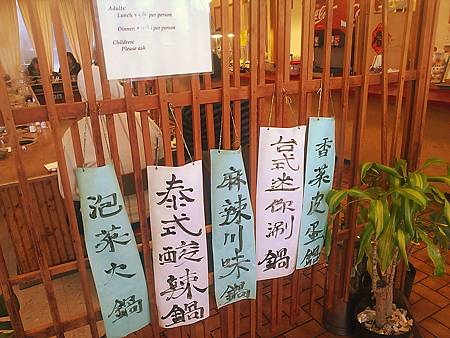 Adults:
Lunch: per person
Dinner: per person
Children:
Please ask
泡菜火鍋
泰式酸辣鍋
麻辣川味鍋
台式迷你涮鍋
香菜皮蛋鍋